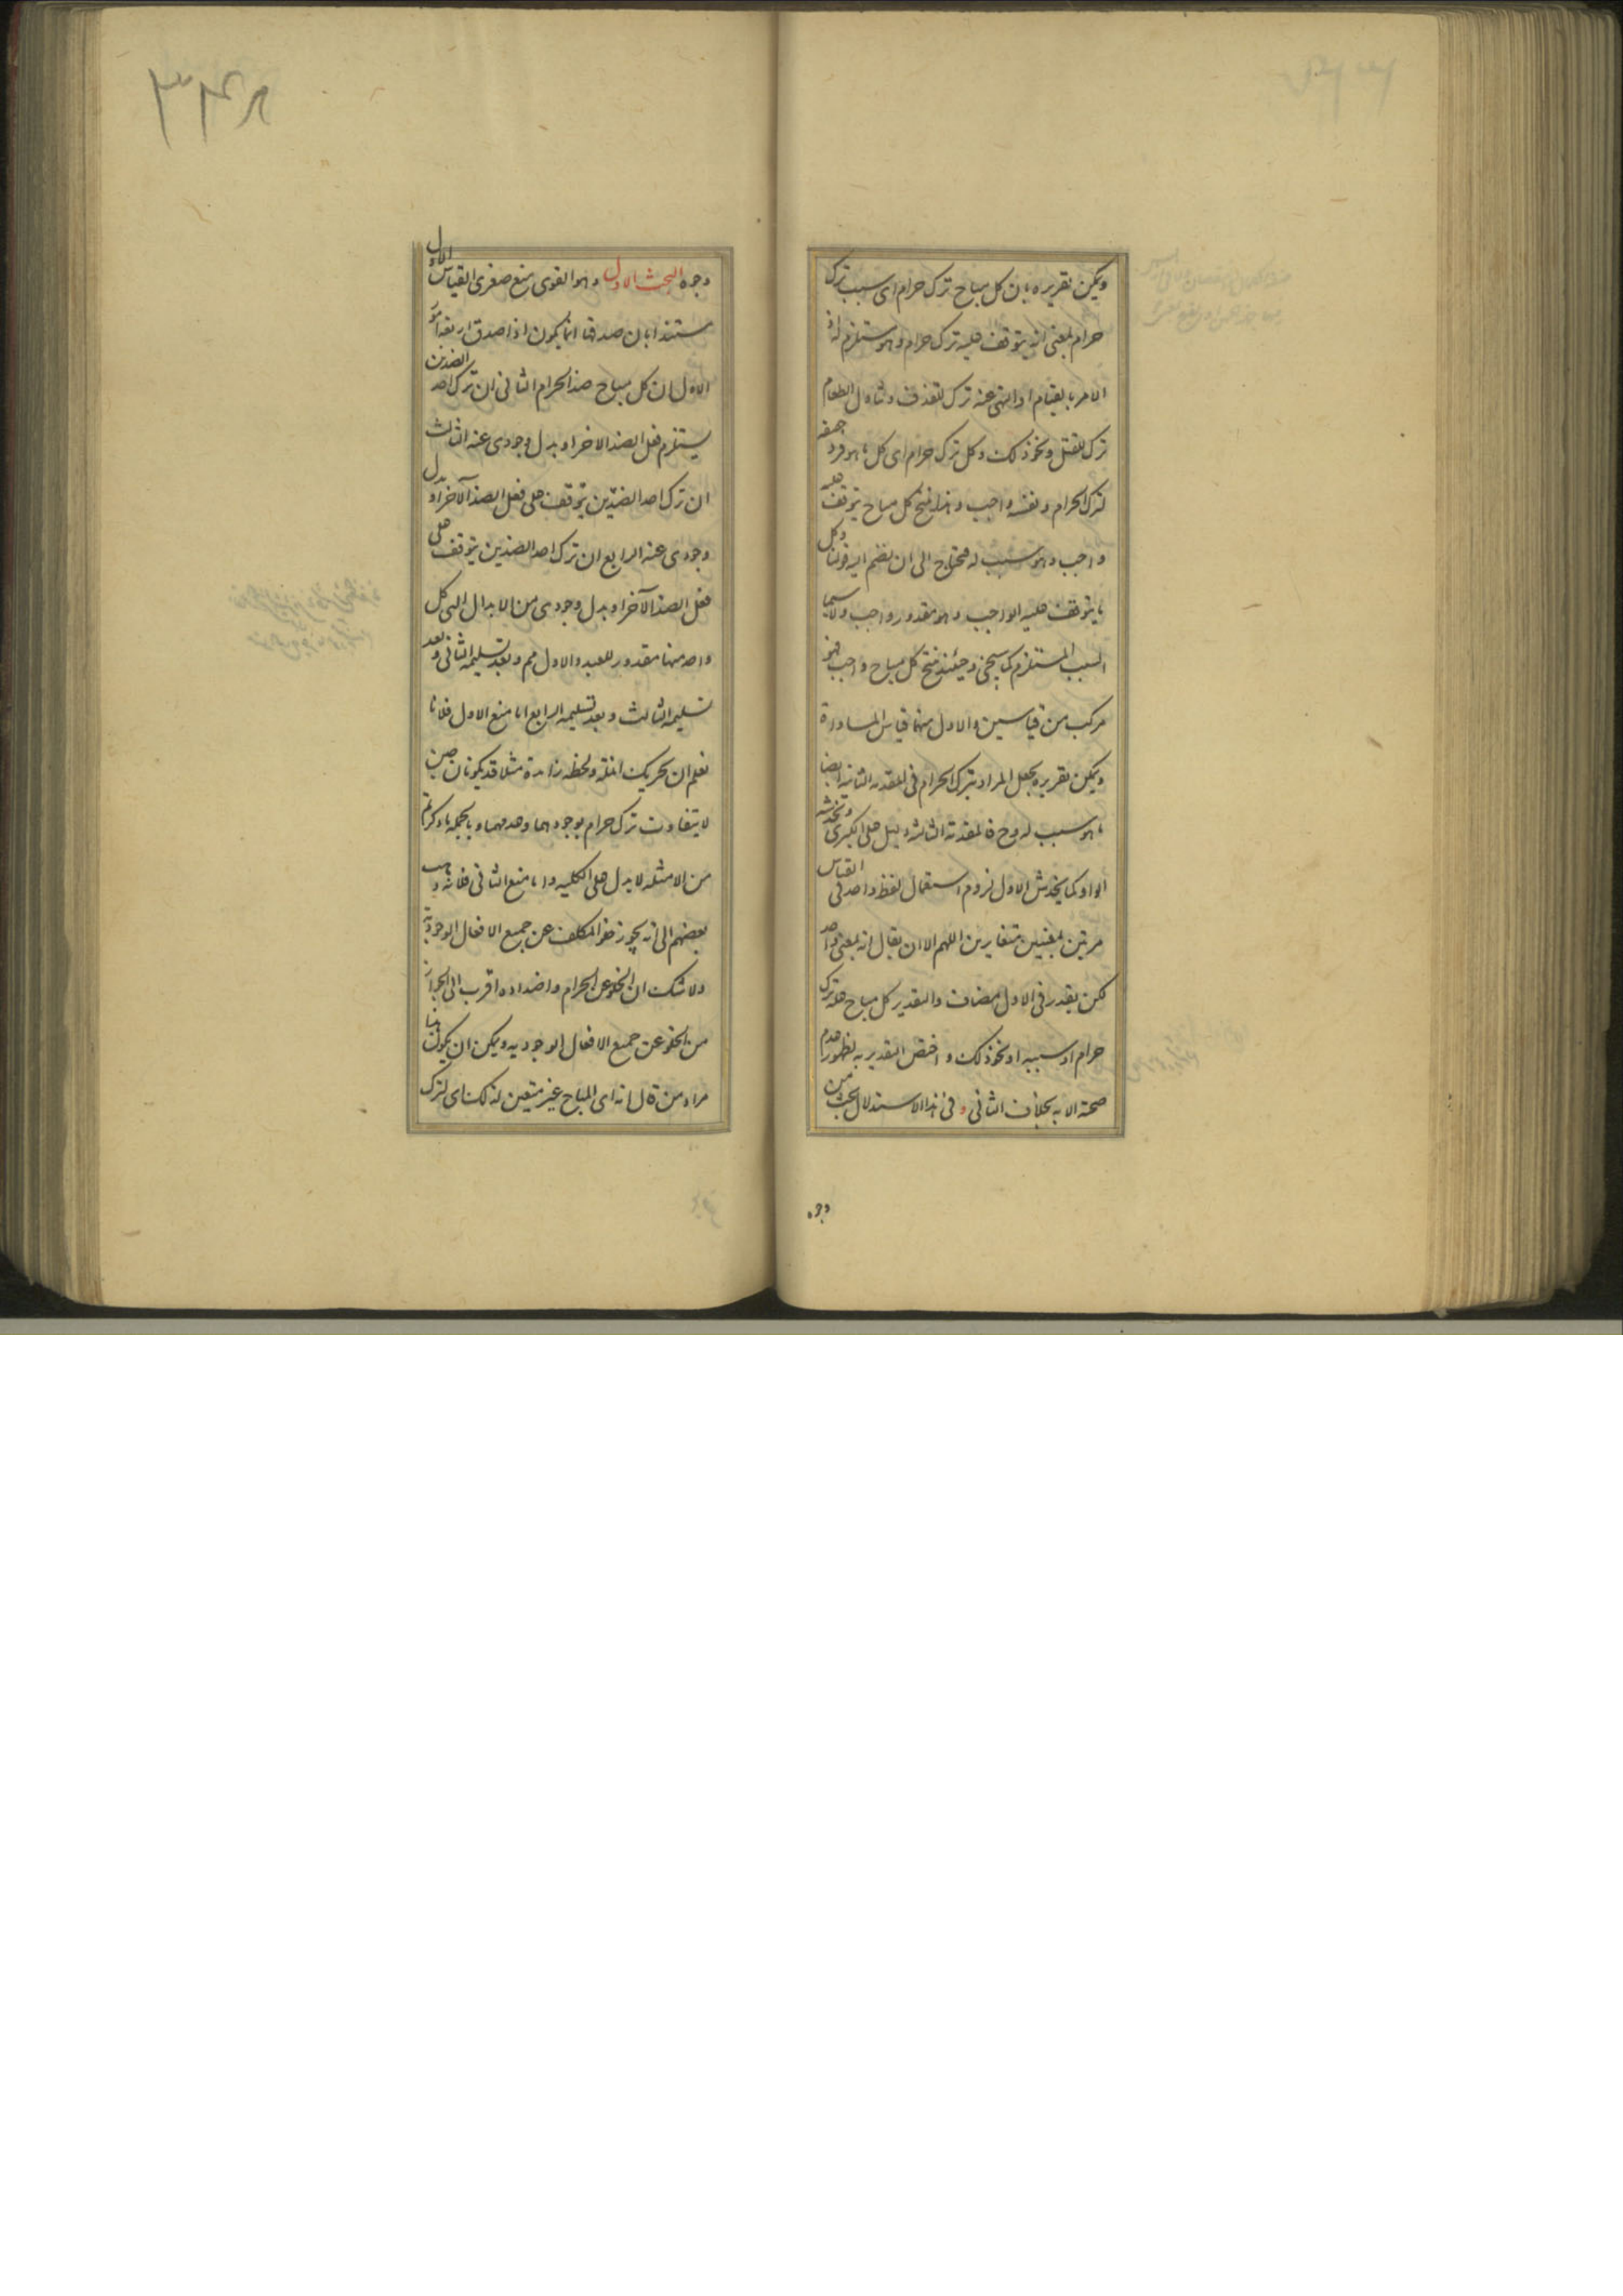 ويمكن تقريره بان كل مباح ترك حرام اى سبب ترك
حرام بمعنى انه يتوقف عليه ترك حرام وهو مستلزم له اذ
الامر بالقيام او النهى عنه ترك للقذف وتناول الطعام
ترك للقتل ونحو ذلك وكل ترك حرام اى كل ما هو فرد
لترك الحرام ونفسه واجب وهذا ينتج كل مباح يتوقف عليه
واجب وهو سبب له فيحتاج الى ان نضم اليه قولنا وكل
ما يتوقف عليه الواجب وهو مقدور واجب ولا سيما
السبب المستلزم كما سيجئ وحينئذ ينتج كل مباح واجب فهو
مركب من قياسين والاول منهما قياس المساواة
ويمكن تقريره بجعل المراد بترك الحرام فى المقدمه الثانيه ايضا
ما هو سبب له وح فالمقدمة الثالثة دليل على الكبرى ويخدشه
الواو كما يخدش الاول لزوم استعمال لفظ واحد فى القياس
مرتين بمعنيين متغايرين اللهم الا ان يقال انه بمعنى واحد
لكن يقدر فى الاول مضاف والتقدير كل مباح علة ترك
حرام او سببه او نحو ذلك و اختص التقدير به لظهور عدم
صحته الا به بخلاف الثانى و فى هذا الاستدلال بحث من
وجوه
٣٤٨
وجوه البحث الاول وهو القوى منع صغرى القياس الاول
مستندا بان صدقها انما يكون اذا صدق اربعة امور
الاول ان كل مباح ضد الحرام الثانى ان ترك احد الضدين
يستلزم فعل الضد الاخر او بدل وجودى عنه الثالث
ان ترك احد الضدين يتوقف على فعل الضد الآخر او بدل
وجودى عنه الرابع ان ترك احد الضدين يتوقف على
فعل الضد الآخر او بدل وجودى من الابدال التى كل
واحد منها مقدور للعبد والاول مم وبعد تسليمه الثانى وبعد
تسليمه الثالث وبعد تسليمه الرابع اما منع الاول فلانا
نعلم ان تحريك انملة ولحظه زائدة مثلا قد يكونان حين
لا يتفاوت ترك حرام بوجودهما وعدمهما وبالجمله ما ذكرتم
من الامثله لا يدل على الكليه واما منع الثانى فلانه ذهب
بعضهم الى انه يجوز خلو المكلف عن جميع الافعال الوجودية
ولا شك ان الخلو عن الحرام واضداده اقرب الى الجواز
من الخلو عن جميع الافعال الوجوديه ويمكن ان يكون هذا
مراد من قال انه اى المباح غير متعين لذلك اى لترك